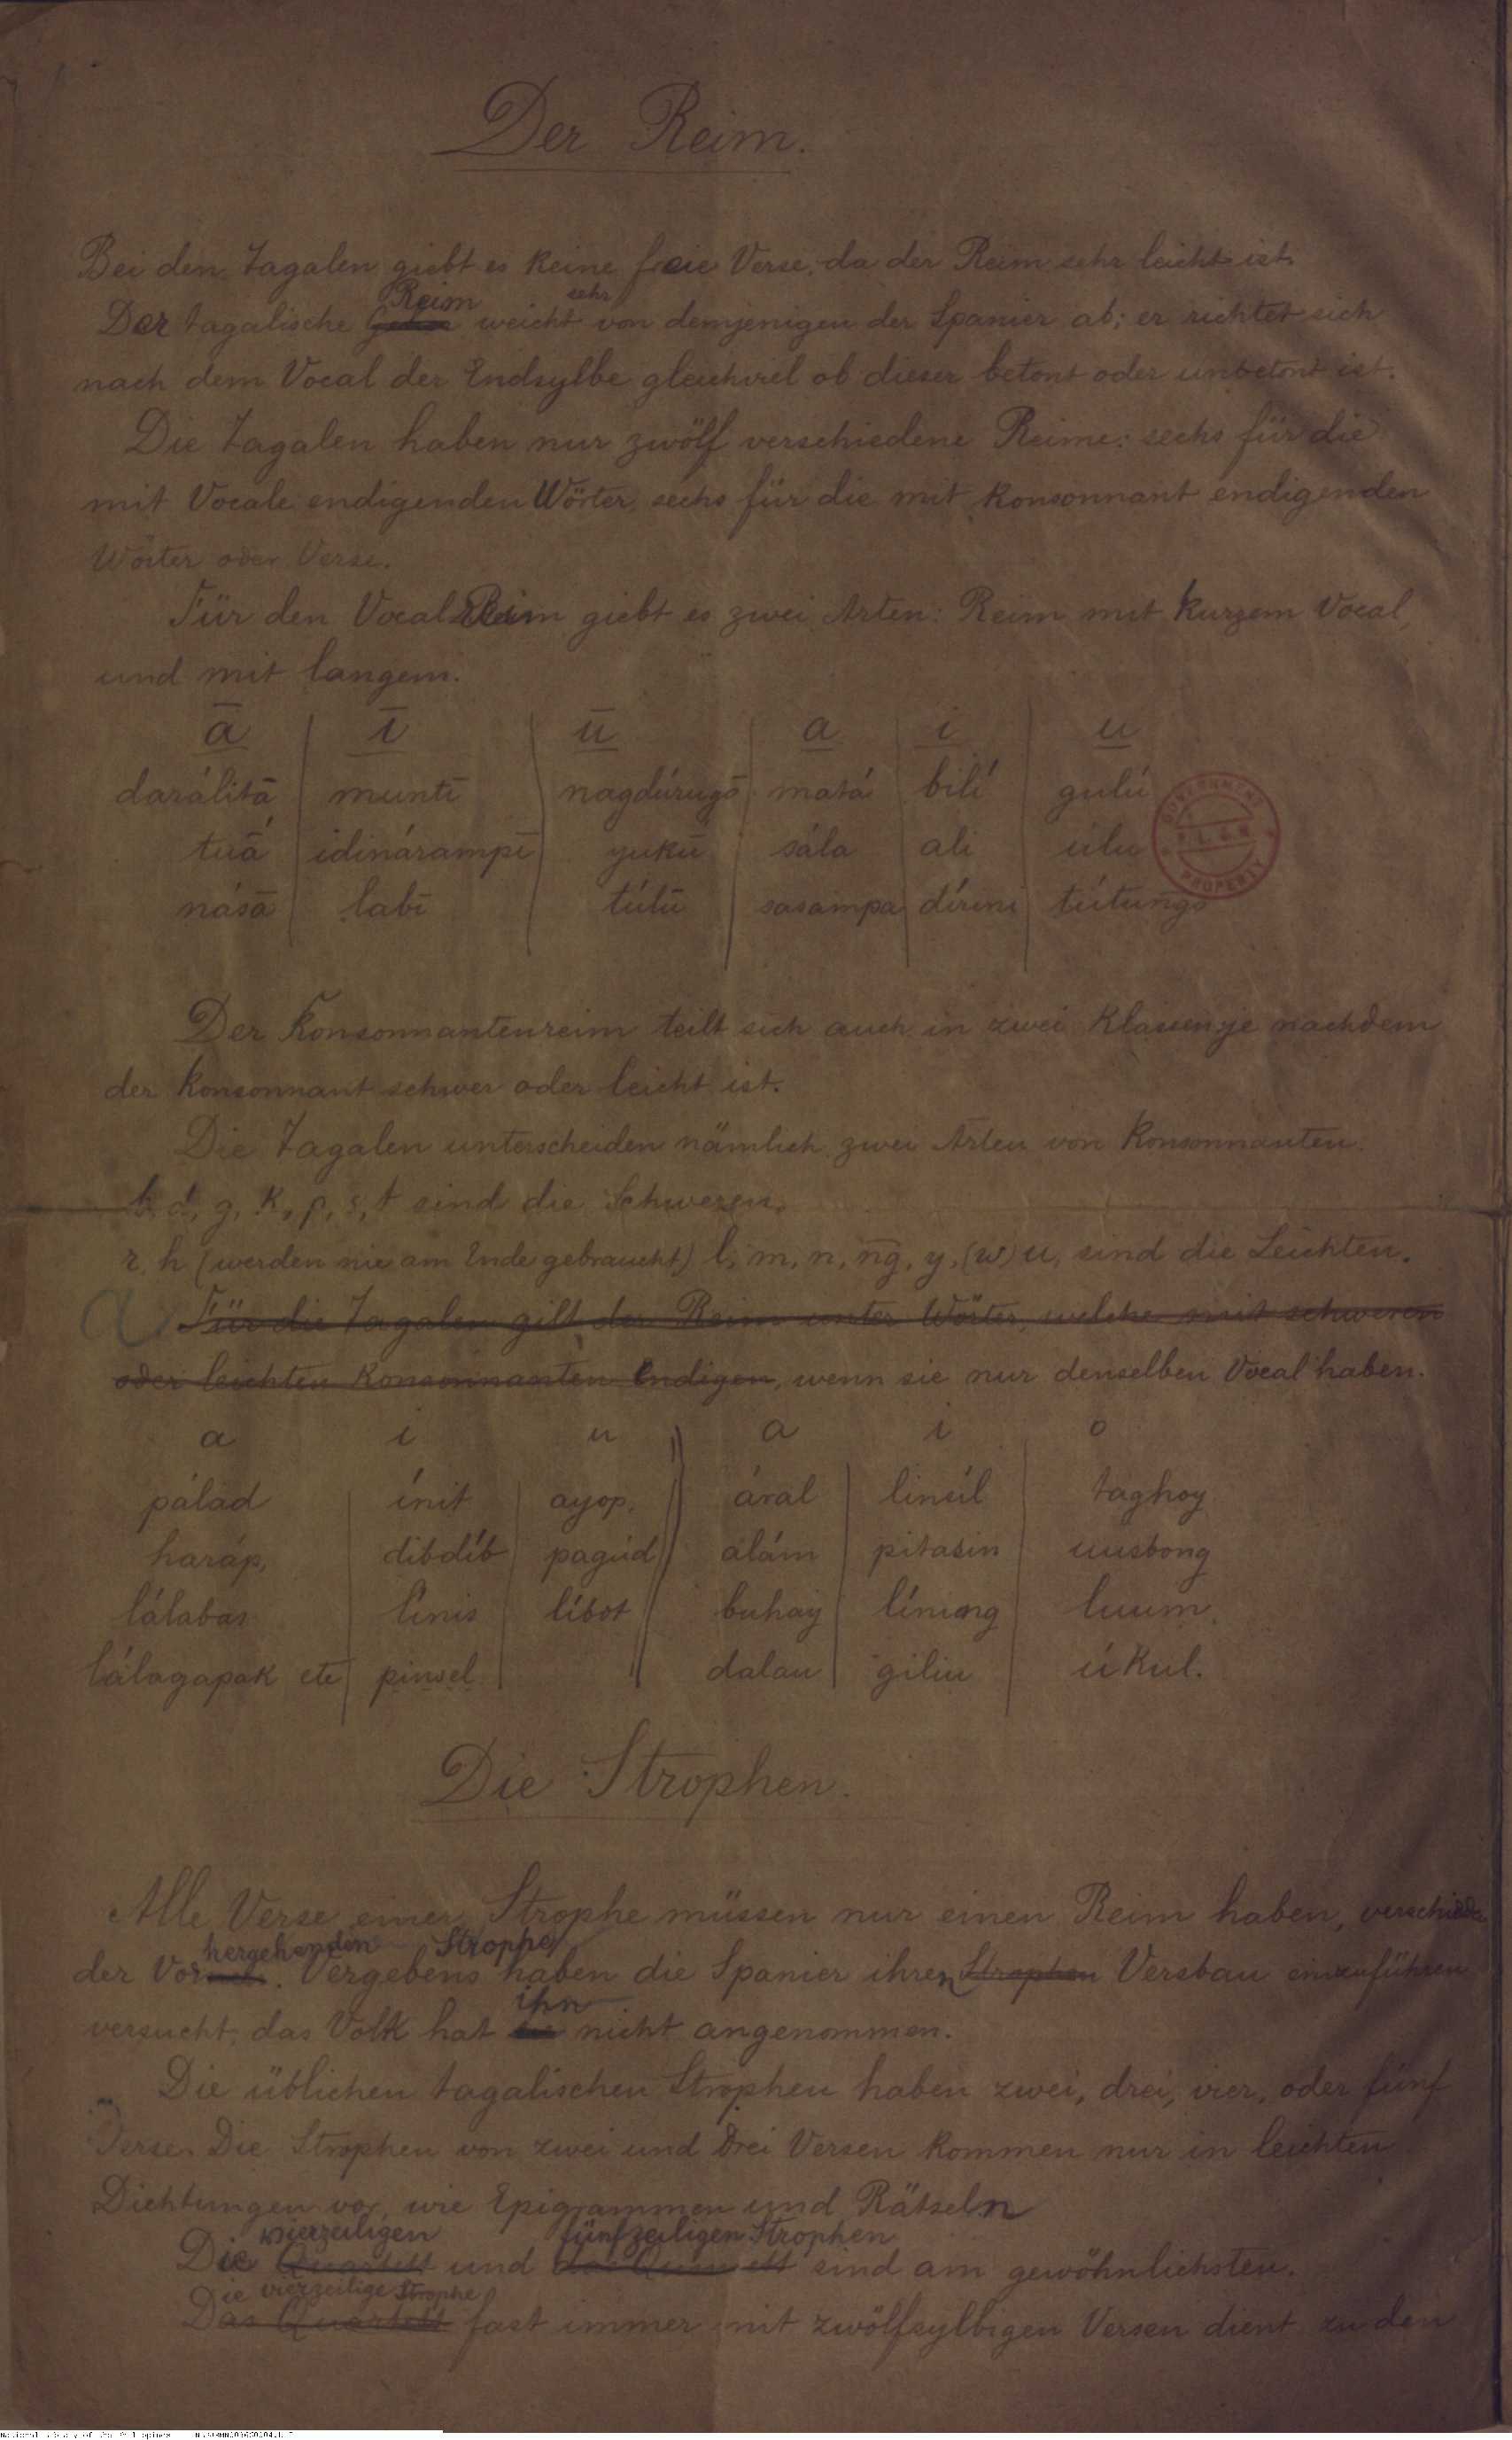 Der Reim.
Bei den Tagalen giebt es keine freie Verse, da der Reim sehr leicht ist.
Reim sehr
Der tagalische weicht von demjenigen der Spanier ab; er richtet sich
nach dem Vocal der Endsylbe gleichviel ob dieser betont oder unbetont ist.
Die Tagalen haben nur zwölf verschiedene Reime: sechs für die
mit Vocale endigenden Wörter, sechs für die mit Konsonnant endigenden
Wörter oder Verse.
Für den Vocal Reim giebt es zwei Arten: Reim mit kurzem Vocal,
und mit langem.
ā ī ū a i u
darálitā muntī nagdúrugō matá bilí gulú
tuā́ idinárampī yukū sála ali úlu
násā labī túlū sasampa dírini tútungo
Der Konsonnantenreim teilt sich auch in zwei Klassen, je nachdem
der Konsonnant schwer oder leicht ist.
Die Tagalen unterscheiden nämlich zwei Arten von Konsonnanten.
b, d, g, k, p, s, t sind die Schweren,
r, h (werden nie am Ende gebraucht) l, m, n, n͠g, y, (w) u, sind die Leichten.
Für die Tagalen gilt der Reim unter Wörter, welche mit schweren
oder leichten Konsonnanten endigen, wenn sie nur denselben Vocal haben.
a i u a i o
pálad ínit ayop. áral linúl taghoy
haráp, dibdíb pagúd alám pitasin uusbong
lálabas línis líbot buhay líning luum,
lálagapak etc pinsel dalau giliu úkul.
Die Strophen.
Alle Verse einer Strophe müssen nur einen Reim haben, verschieden
hergehenden Strophe
der Vor. Vergebens haben die Spanier ihren Strophen Versbau einzuführen
ihn
versucht, das Volk hat nicht angenommen.
Die üblichen tagalischen Strophen haben zwei, drei, vier, oder fünf
Verse. Die Strophen von zwei und drei Versen kommen nur in leichten
Dichtungen vor, wie Epigrammen und Rätseln
vierzeiligen fünfzeiligen Strophen
Die Quartett und das Quintett sind am gewöhnlichsten.
Die vierzeilige Strophe
Das Quartett fast immer mit zwölfsylbigen Versen dient zu den
GOVERNMENT
PROPERTY